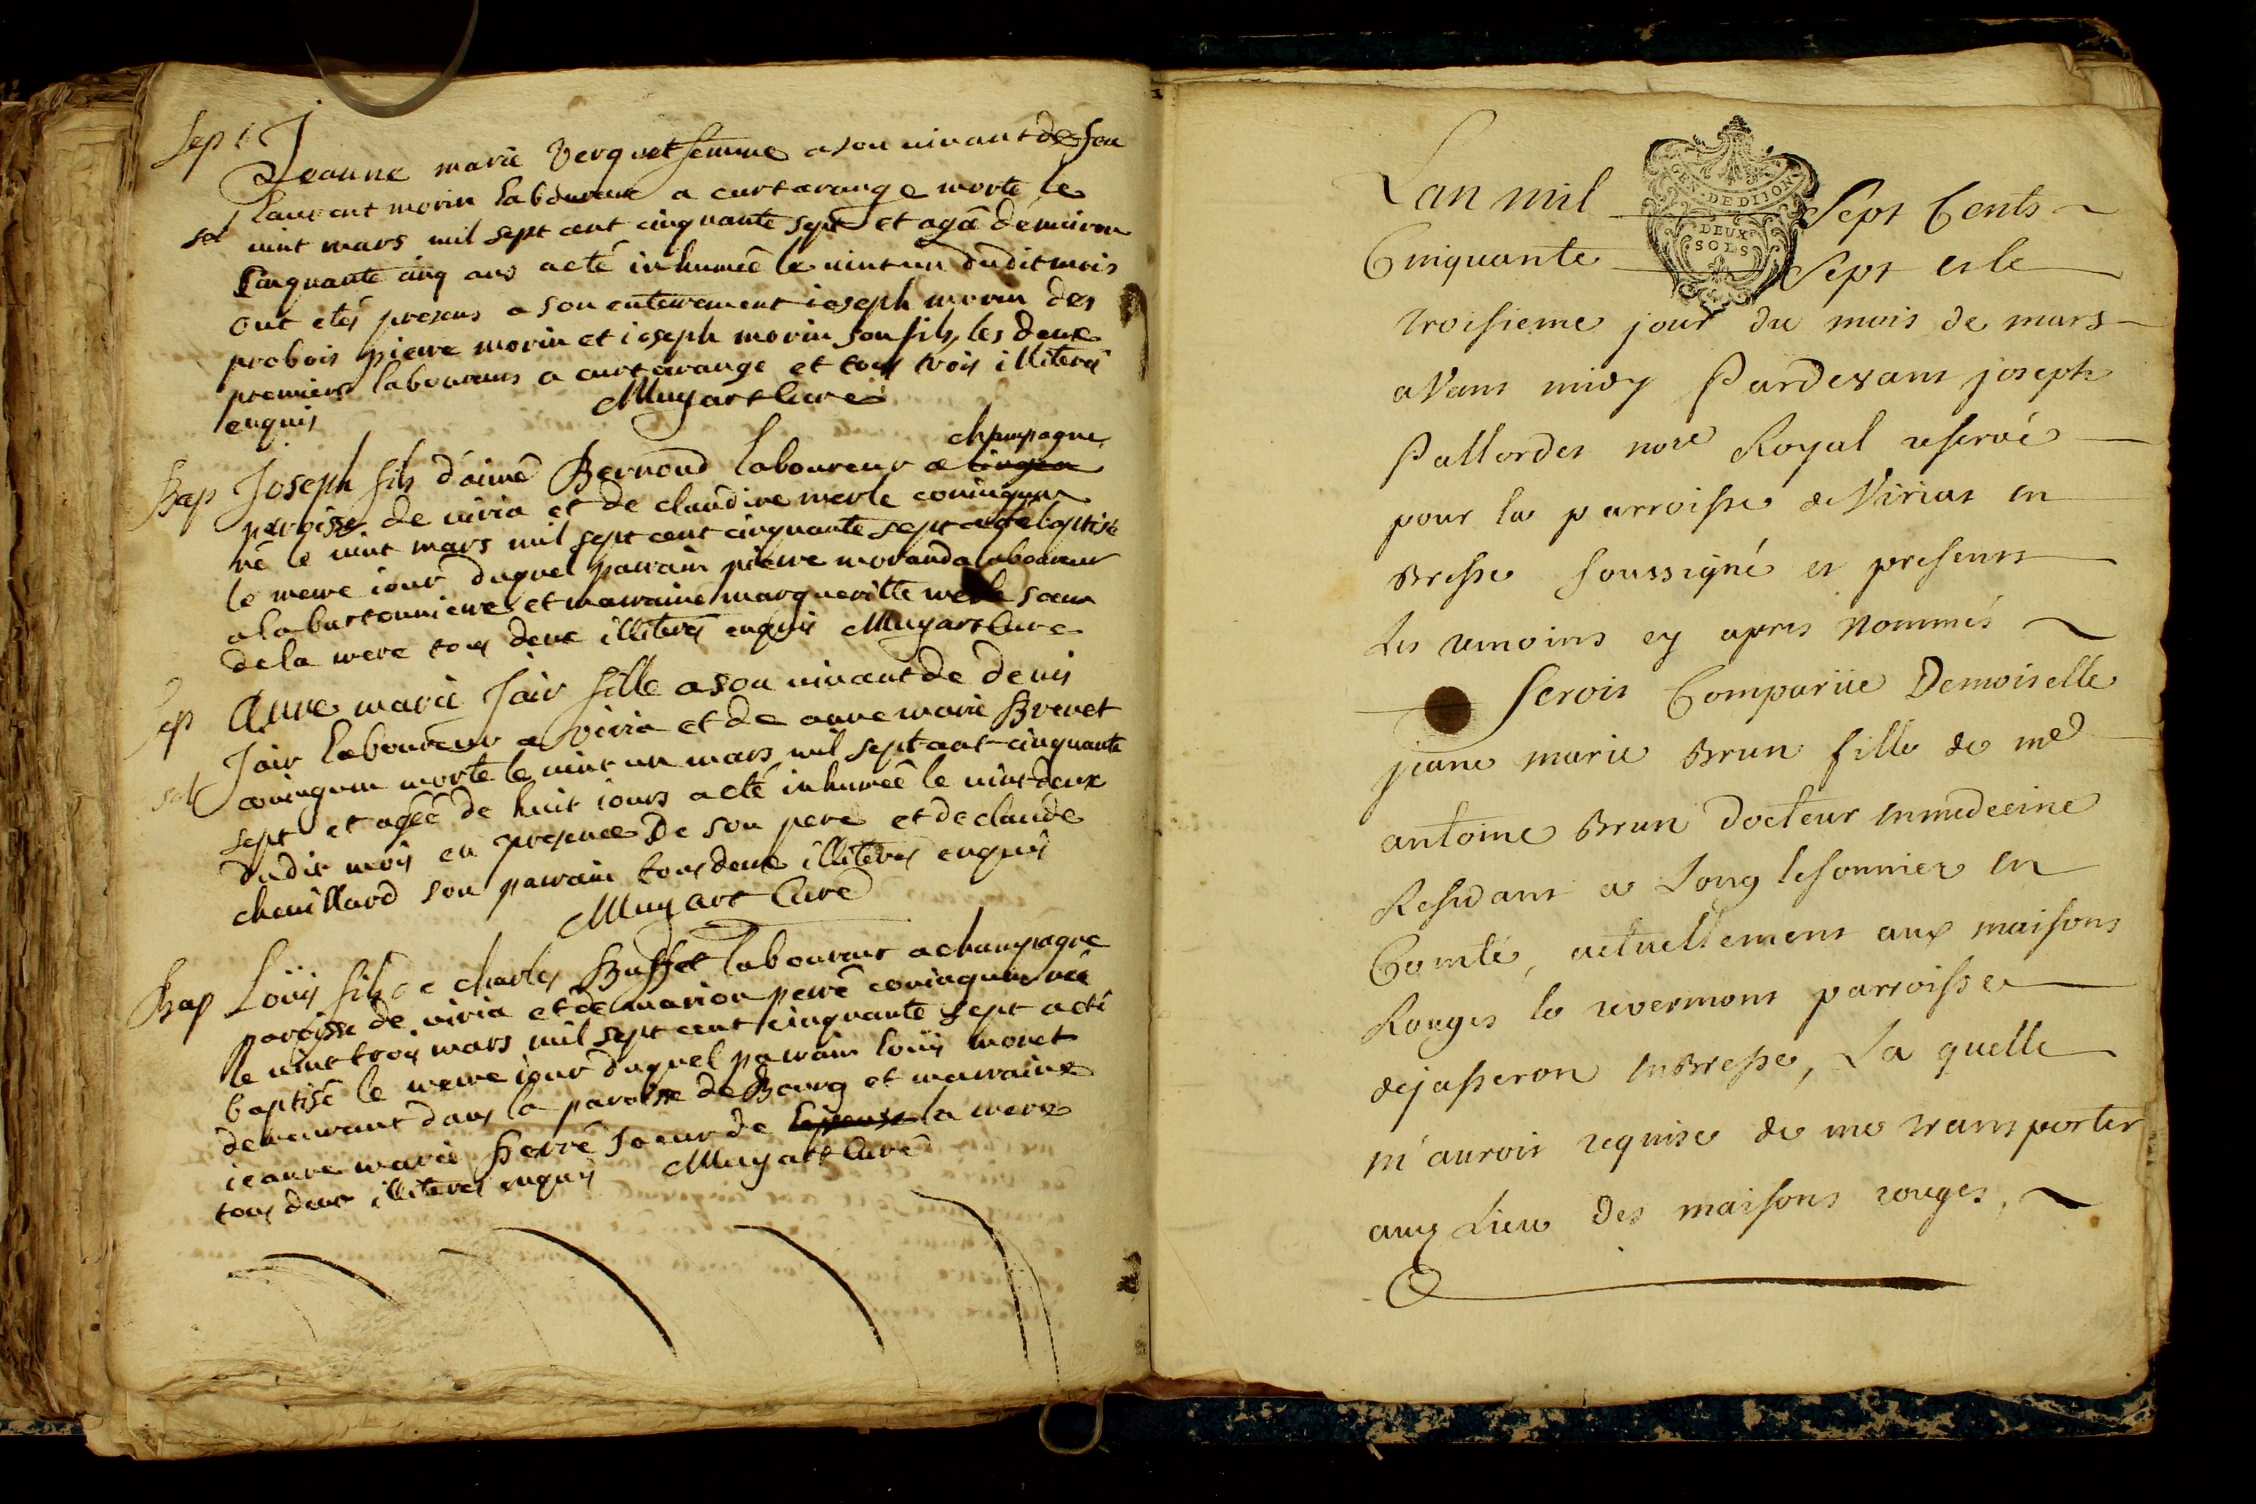 Sept
Jeanne marie Verguet femme a son uiuant de feu
laurent morin laboureur a curtarange morte le
sol
uint mars mil sept cent cinquante sept et agée démiron
Cinquante cinq ans a eté inhumeé le uint un dudit mois
ont etés presens a son enterrement ioseph morin des
probois pierre morin et ioseph morin son fils, les deux
premiers laboureurs a curtarange et tous trois illiterés
enquis
Muyart Curé
champagne
Bap Joseph fils d'aimé Bernoud laboureur a
paroisse de uiria et de claudine merle coniugum
né le uint mars mil sept cent cinquante sept a eté baptisé
le meme iour duquel parain pierre morand laboureur
a la bartonniere et maraine marguerite merle soeur
de la mere tous deux illiterés enquis Muyart Curé
Sep Anne marie Jair fille a son uiuant de denis
Jair laboureur a Viria et de anne marie Brevet
coniugum morte le uint un mars mil sept cent cinquante
sol
sept et ageé de huit iours a eté inhumeé le uint deux
dudit mois en presence De son pere et de claude
cheuillard son parain tous deux illiterés enquis
Muyart Curé
Bap Loüis fils de charles Buffet laboureur a champagne
paroisse de uiria et de marion perré coniugum né
le uint trois mars mil sept cent cinquante sept a eté
baptisé le meme iour duquel parain loüis monet
demeurant dans la paroisse de Bourg et maraine
ieanne marie perré soeur de la mere
tous deux illiterés enquis Muyart Curé
GEN. DE DIJON
DEUX
SOLS
Lan mil Sept Cents
Cinquante Sept et le
troisieme jour du mois de mars
avant midy Pardevant joseph
Pallordet nore Royal reservé
pour la parroisse de Viriat en
Bresse soussigné et presents
Les temoins cy apres Nommés
Seroit Comparüe Demoiselle
jeane marie Brun fille de me
antoine Brun Docteur en medecine
Residant a Long lesonnier en
Comté, actuellement aux maisons
Rouges le revermont parroisse
dejasseron en Bresse, La quelle
m'auroit requise de me transporter
aux Lieu des maisons rouges,